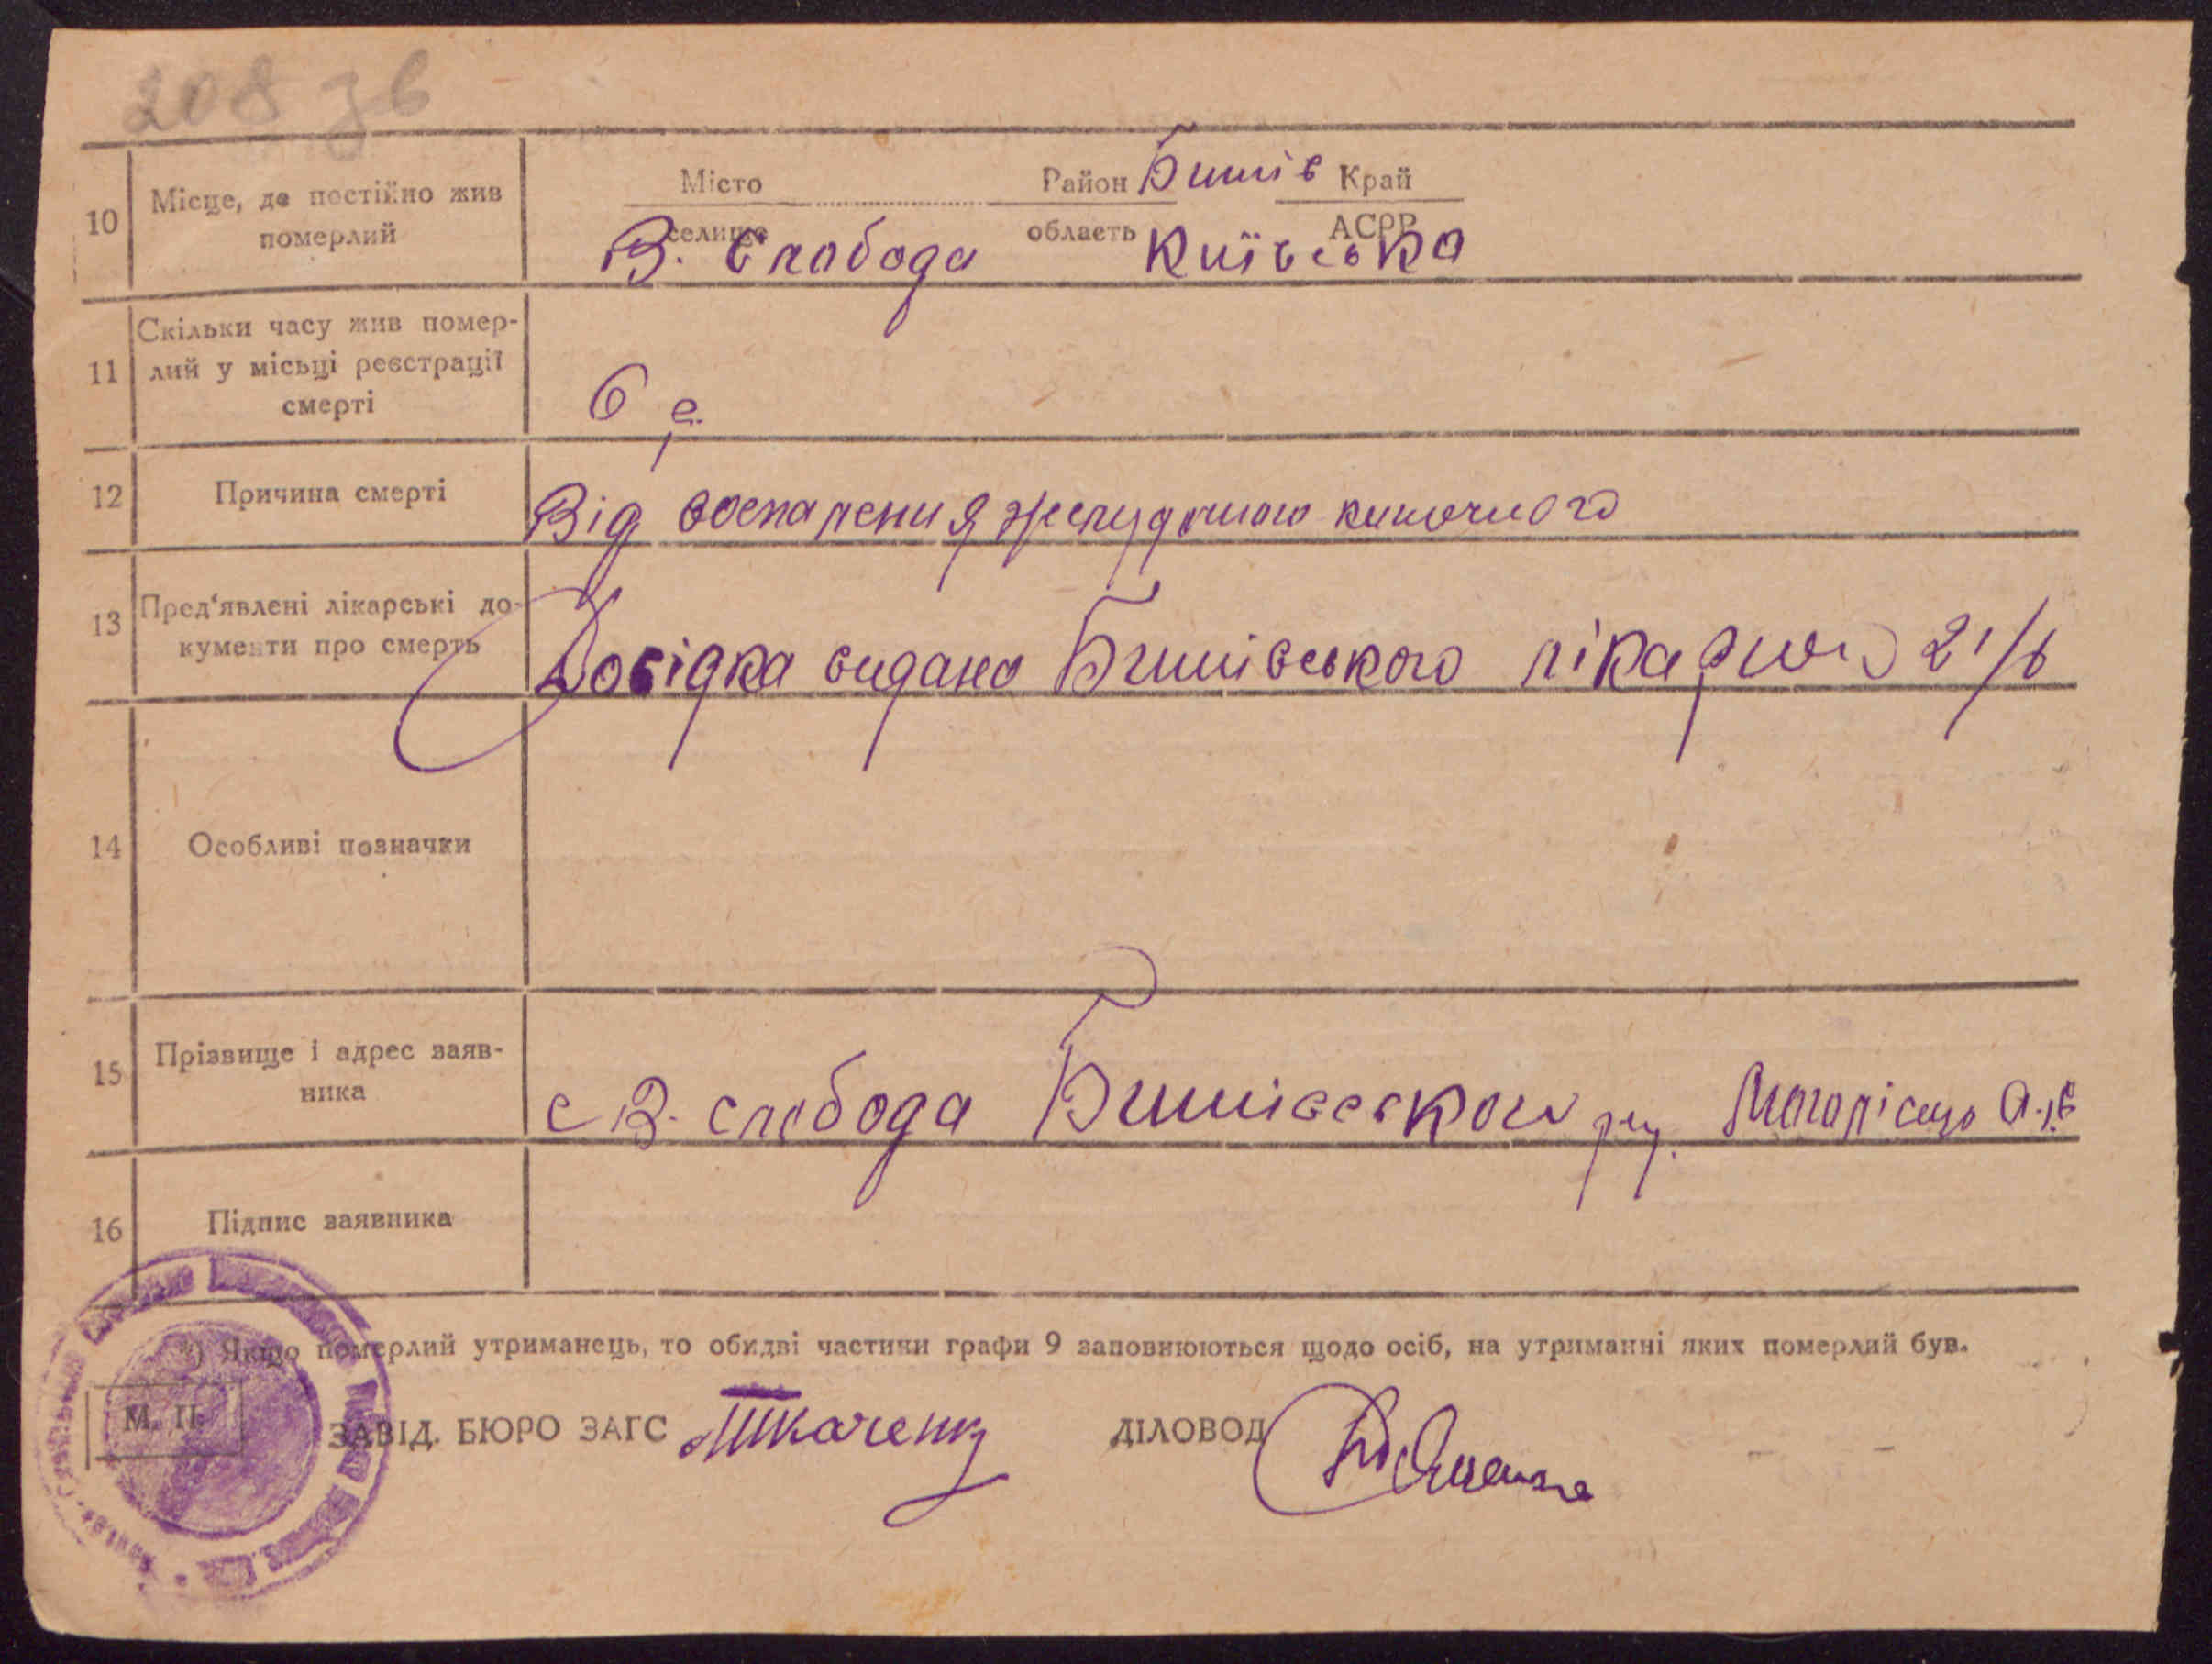 208 зв
10 Місце, де постійно жив померлий
Місто Район Бишів Край
селище область АСРР
В. Слобода Київська
11 Скільки часу жив помер-
лий у місьці реєстрації
смерті
6 р.
12 Причина смерті
Від воспаления желудочного кишочного
13 Пред'явлені лікарські до-
кументи про смерть
Довідка видана Бишівського лікарною 21/6
14 Особливі позначки
15 Прізвище і адрес заяв-
ника
с В. слобода Бишівського
16 Підпис заявника
*) Якщо померлий утриманець, то обидві частини графи 9 заповнюються щодо осіб, на утриманні яких померлий був.
М. П.
ЗАВІД. БЮРО ЗАГС Ткаченко ДІЛОВОД